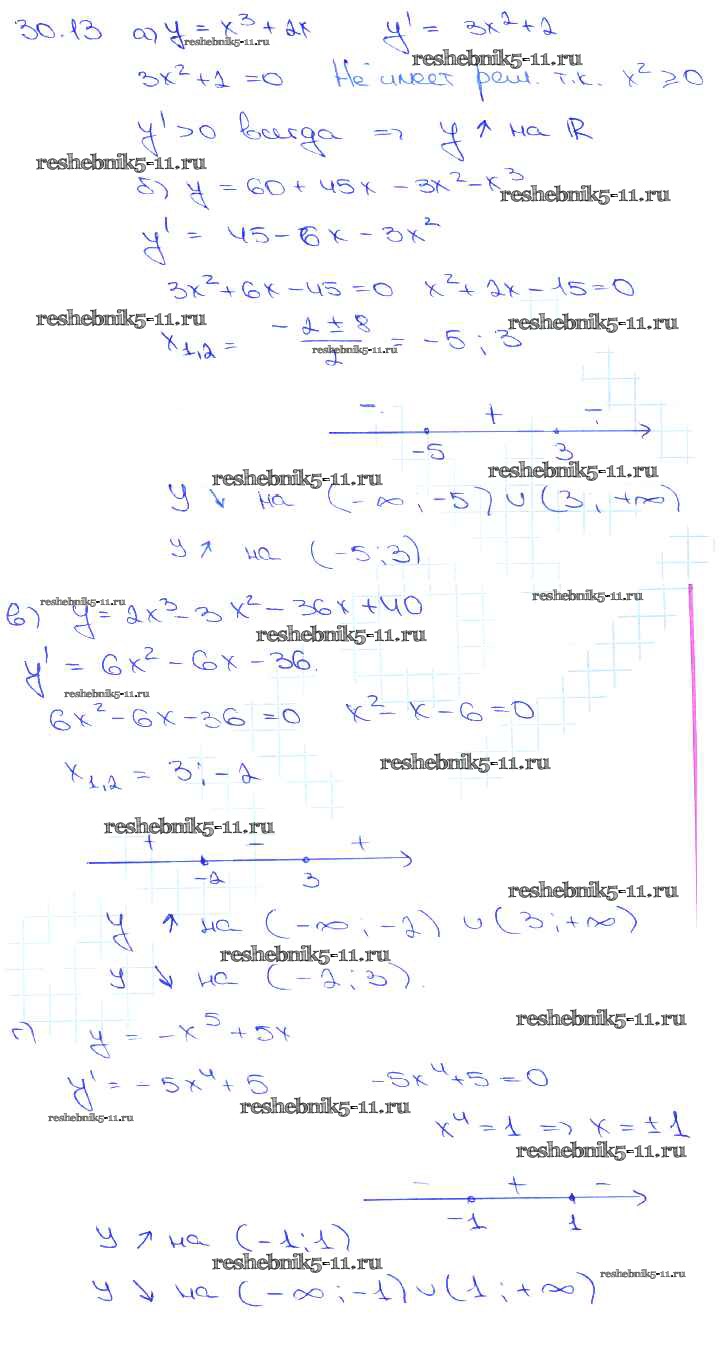 30.13 а) y = x³ + 2x y' = 3x² + 2
reshebnik5-11.ru
reshebnik5-11.ru
3x² + 2 = 0 Не имеет реш. т.к. x² ≥ 0
y' > 0 всегда => y ↑ на ℝ
reshebnik5-11.ru
б) y = 60 + 45x - 3x² - x³
reshebnik5-11.ru
y' = 45 - 6x - 3x²
3x² + 6x - 45 = 0 x² + 2x - 15 = 0
reshebnik5-11.ru reshebnik5-11.ru
x₁,₂ = (-2 ± 8)/2 = -5; 3
reshebnik5-11.ru
- + -
-5 3
reshebnik5-11.ru reshebnik5-11.ru
y ↓ на (-∞; -5) ∪ (3; +∞)
y ↑ на (-5; 3)
reshebnik5-11.ru reshebnik5-11.ru
в) y = 2x³ - 3x² - 36x + 40
reshebnik5-11.ru
y' = 6x² - 6x - 36.
reshebnik5-11.ru
6x² - 6x - 36 = 0 x² - x - 6 = 0
x₁,₂ = 3; -2
reshebnik5-11.ru
reshebnik5-11.ru
+ - +
-2 3
reshebnik5-11.ru
y ↑ на (-∞; -2) ∪ (3; +∞)
reshebnik5-11.ru
y ↓ на (-2; 3).
reshebnik5-11.ru
г) y = -x⁵ + 5x
y' = -5x⁴ + 5 -5x⁴ + 5 = 0
reshebnik5-11.ru
reshebnik5-11.ru
x⁴ = 1 => x = ± 1
reshebnik5-11.ru
- + -
-1 1
y ↑ на (-1; 1)
reshebnik5-11.ru
reshebnik5-11.ru
y ↓ на (-∞; -1) ∪ (1; +∞)